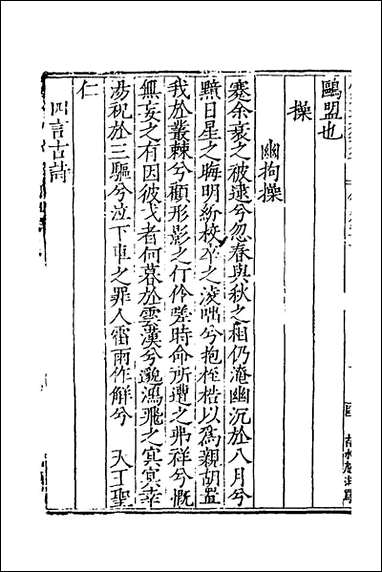 鷗盟也
操
幽拘操
蹇余衰之被逮兮忽春與秋之相仍淹幽沉於八月兮
黯日星之晦明紛校卒之凌咄兮抱桎梏以爲親胡寘
我於叢棘兮顧形影之伶仃嗟時命所遭之弗祥兮慨
無妄之有因彼弋者何暮於雲漢兮邈鴻飛之冥冥幸
湯祝於三驅兮泣下車之罪人雷雨作解兮 天王聖
仁
四言古詩